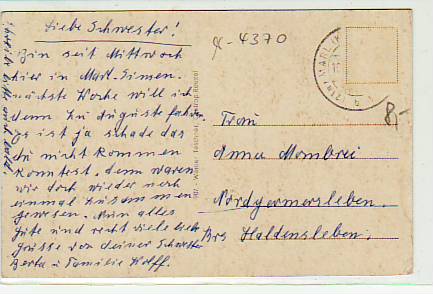 Schreib bitte mal bald.
Liebe Schwester!
Bin seit Mittwoch
hier in Marl-Sinsen.
nächste Woche will ich
denn zu Auguste fahren.
Es ist ja schade das
du nicht kommen
konntest, denn waren
wir doch wieder noch
einmal zusammen
gewesen. Nun alles
Gute und recht viele liebe
Grüsse von deiner Schwester
Berta u Familie Wolff.
4370
MARL
Frau
Anna Mombrei
Nordgermersleben.
Krs Haldensleben.
8,-